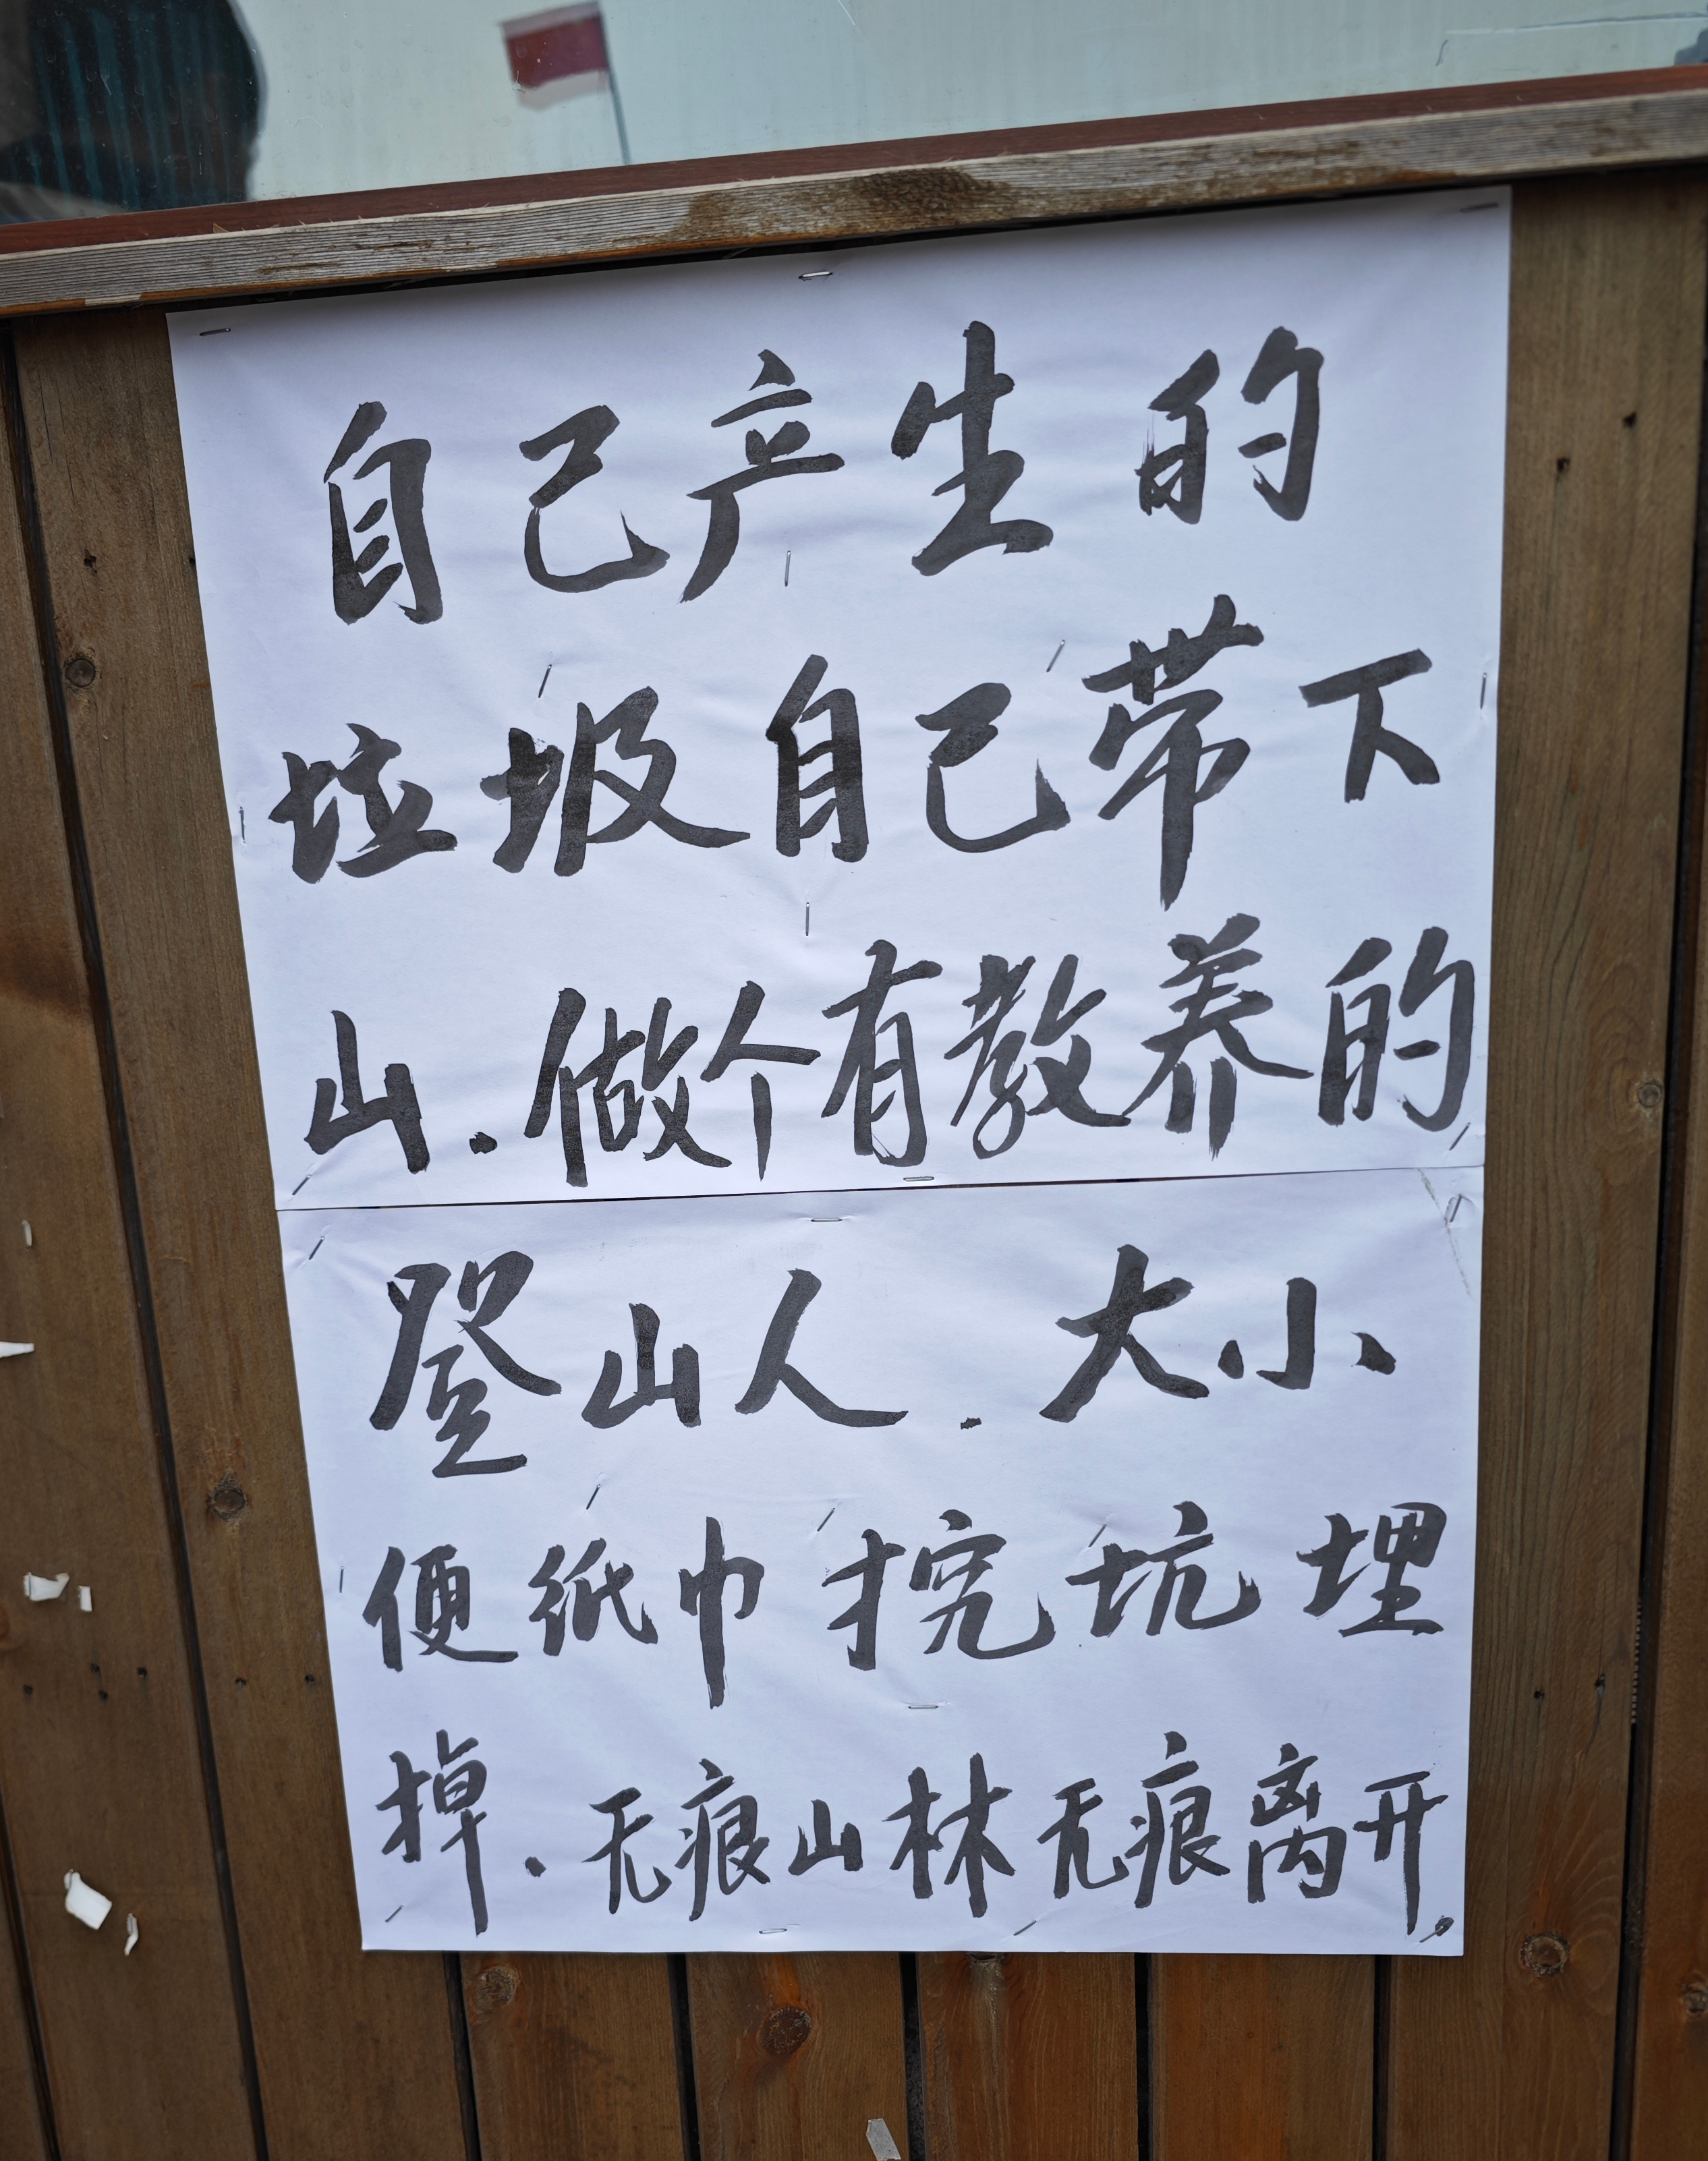 自己产生的
垃圾自己带下
山.做个有教养的
登山人.大小
便纸巾挖坑埋
掉.无痕山林无痕离开.